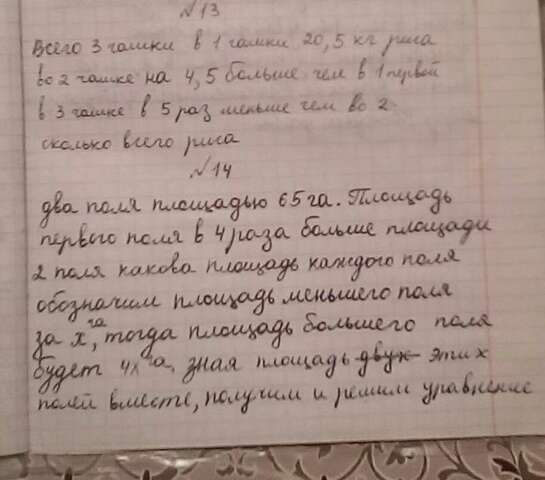 №13
Всего 3 чашки в 1 чашки 20,5 кг риса
во 2 чашке на 4,5 больше чем в 1 первой
в 3 чашке в 5 раз меньше чем во 2
сколько всего риса
№14
два поля площадью 65 га. Площадь
первого поля в 4 раза больше площади
2 поля какова площадь каждого поля
обозначим площадь меньшего поля
за x га, тогда площадь большего поля
будет 4x га. зная площадь двух этих
полей вместе, получим и решим уравнение